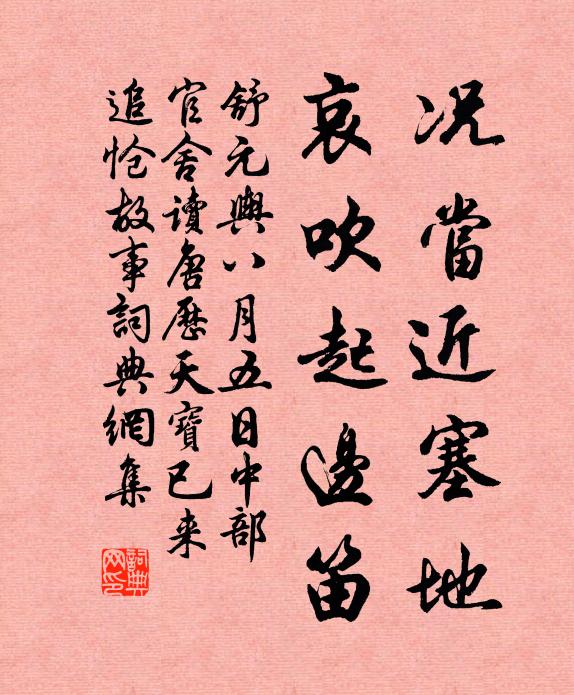 况當近塞地
哀吹起邊笛
舒元輿八月五日中部
官舍讀唐歷天寶已来
追愴故事詞典網集
詞典
网印